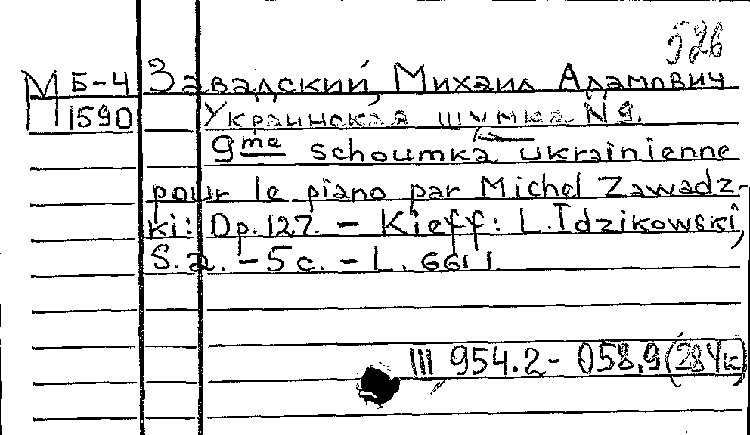 526
М Б-4 Завадский, Михаил Адамович
П 1590 Украинская шумка N 9.
9me schoumka ukrainienne
pour le piano par Michel Zawadz-
ki: Op. 127. - Kieff: L. Idzikowski,
S. a. - 5 c. - L. 661 I.
III 954.2 - 058.9 (2=Ук)